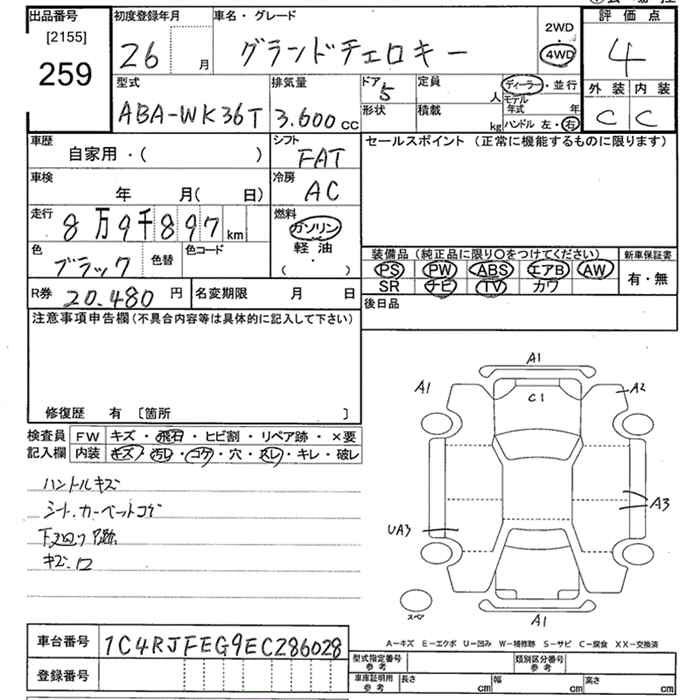 出品番号 [2155] 259
初度登録年月 26 月
車名・グレード グランドチェロキー
2WD
4WD
評価点 4
外装 内装
C C
型式 ABA-WK36T
排気量 3.600 cc
ドア 5
形状
定員 人
積載 kg
ディーラー・並行
モデル年式 年
ハンドル 左・右
車歴 自家用・( )
シフト FAT
セールスポイント (正常に機能するものに限ります)
車検 年 月( 日)
冷房 AC
走行 8万9千897 km
燃料 ガソリン
軽油
( ・ )
色 ブラック 色替 色コード
装備品 (純正品に限り○をつけてください) 新車保証書
PS PW ABS エアB AW 有・無
SR ナビ TV カワ
R券 20.480 円 名変期限 月 日
後日品
注意事項申告欄(不具合内容等は具体的に記入して下さい)
修復歴 有 [箇所 ]
検査員記入欄
FW キズ・飛石・ヒビ割・リペア跡・×要
内装 キズ・汚レ・コゲ・穴・スレ・キレ・破レ
ハンドルキズ
シート.カーペットコゲ
キズ.
A1
A1 C1 A2
A3
UA3
スペア A1
A-キズ E-エクボ U-凹み W-補修跡 S-サビ C-腐食 XX-交換済
車台番号 1C4RJFEG9EC286028
登録番号
型式指定番号 参考 類別区分番号 参考
車庫証明用 参考 長さ cm 幅 cm 高さ cm